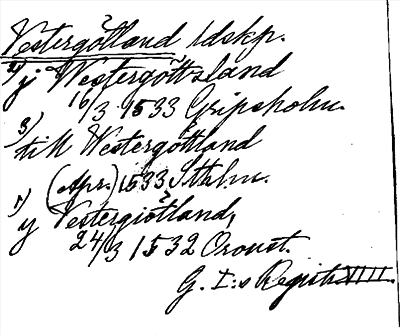 Vestergötland, ldskp.
2) j Westergöttzland
16/3 1533 Gripsholm.
3) till Westergöttland
(Apr.) 1533 Sthlm.
1) y Vestergiötland,
24/3 1532 Oroust.
G. I:s Registr. VIII.